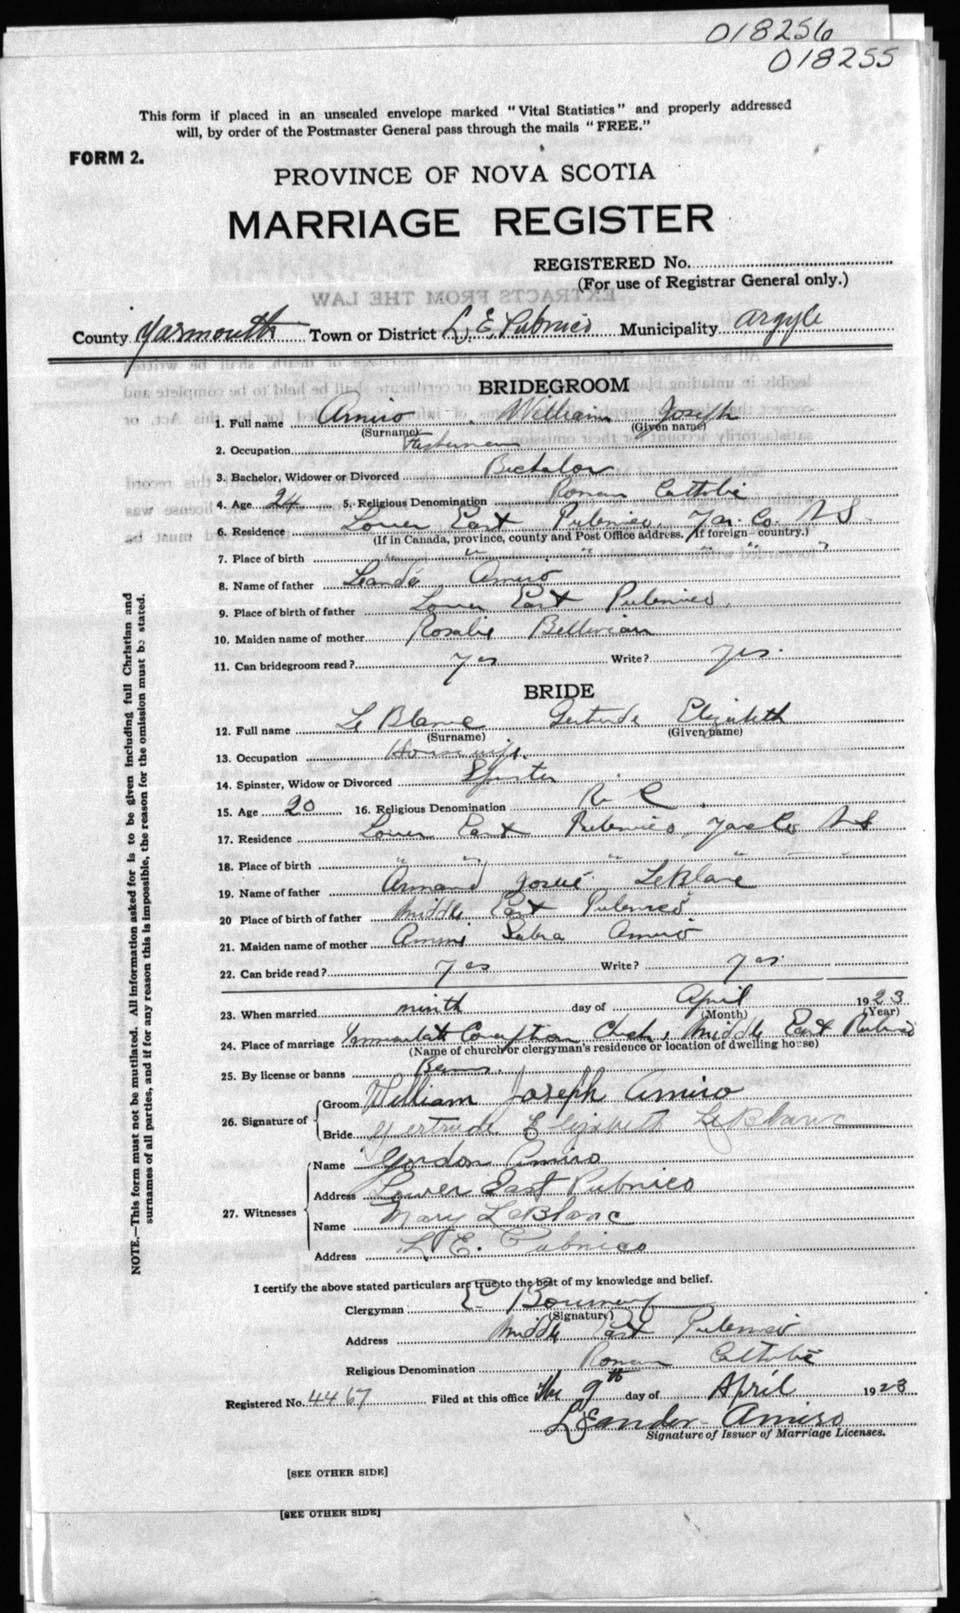 018256
018255
This form if placed in an unsealed envelope marked "Vital Statistics" and properly addressed
will, by order of the Postmaster General pass through the mails "FREE."
FORM 2.
PROVINCE OF NOVA SCOTIA
MARRIAGE REGISTER
REGISTERED No.
(For use of Registrar General only.)
EXTRACTS FROM THE LAW
County Yarmouth Town or District L. E. Pubnico Municipality Argyle
BRIDEGROOM
1. Full name Amiro William Joseph
(Surname) (Given name)
2. Occupation Fisherman
3. Bachelor, Widower or Divorced Bachelor
4. Age 24 5. Religious Denomination Roman Catholic
6. Residence Lower East Pubnico, Yar. Co. N S.
(If in Canada, province, county and Post Office address. If foreign—country.)
7. Place of birth " " " " "
8. Name of father Leandé Amiro
9. Place of birth of father Lower East Pubnico.
10. Maiden name of mother Rosalie Belliveau
11. Can bridegroom read? yes Write? yes.
BRIDE
12. Full name Le Blanc Gertrude Elizabeth
(Surname) (Given name)
13. Occupation Housewife.
14. Spinster, Widow or Divorced Spinster
15. Age 20 16. Religious Denomination R C.
17. Residence Lower East Pubnico, Yar Co N S
18. Place of birth " " " "
19. Name of father Armand Josué LeBlanc
20 Place of birth of father Middle East Pubnico
21. Maiden name of mother Amiro
22. Can bride read? yes Write? yes.
23. When married ninth day of April 1923
(Month) (Year)
24. Place of marriage Immaculate Conception Church, Middle East Pubnico
(Name of church or clergyman's residence or location of dwelling house)
25. By license or banns Banns.
26. Signature of
Groom William Joseph Amiro
Bride Gertrude Elizabeth LeBlanc
27. Witnesses
Name Gordon Amiro
Address Lower East Pubnico
Name Mary LeBlanc
Address L. E. Pubnico
I certify the above stated particulars are true to the best of my knowledge and belief.
Clergyman
(Signature)
Address Middle East Pubnico
Religious Denomination Roman Catholic
Registered No. 4467 Filed at this office the 9th day of April 1923
LEander Amiro
Signature of Issuer of Marriage Licenses.
[SEE OTHER SIDE]
[SEE OTHER SIDE]
NOTE.—This form must not be mutilated. All information asked for is to be given including full Christian and
surnames of all parties, and if for any reason this is impossible, the reason for the omission must be stated.